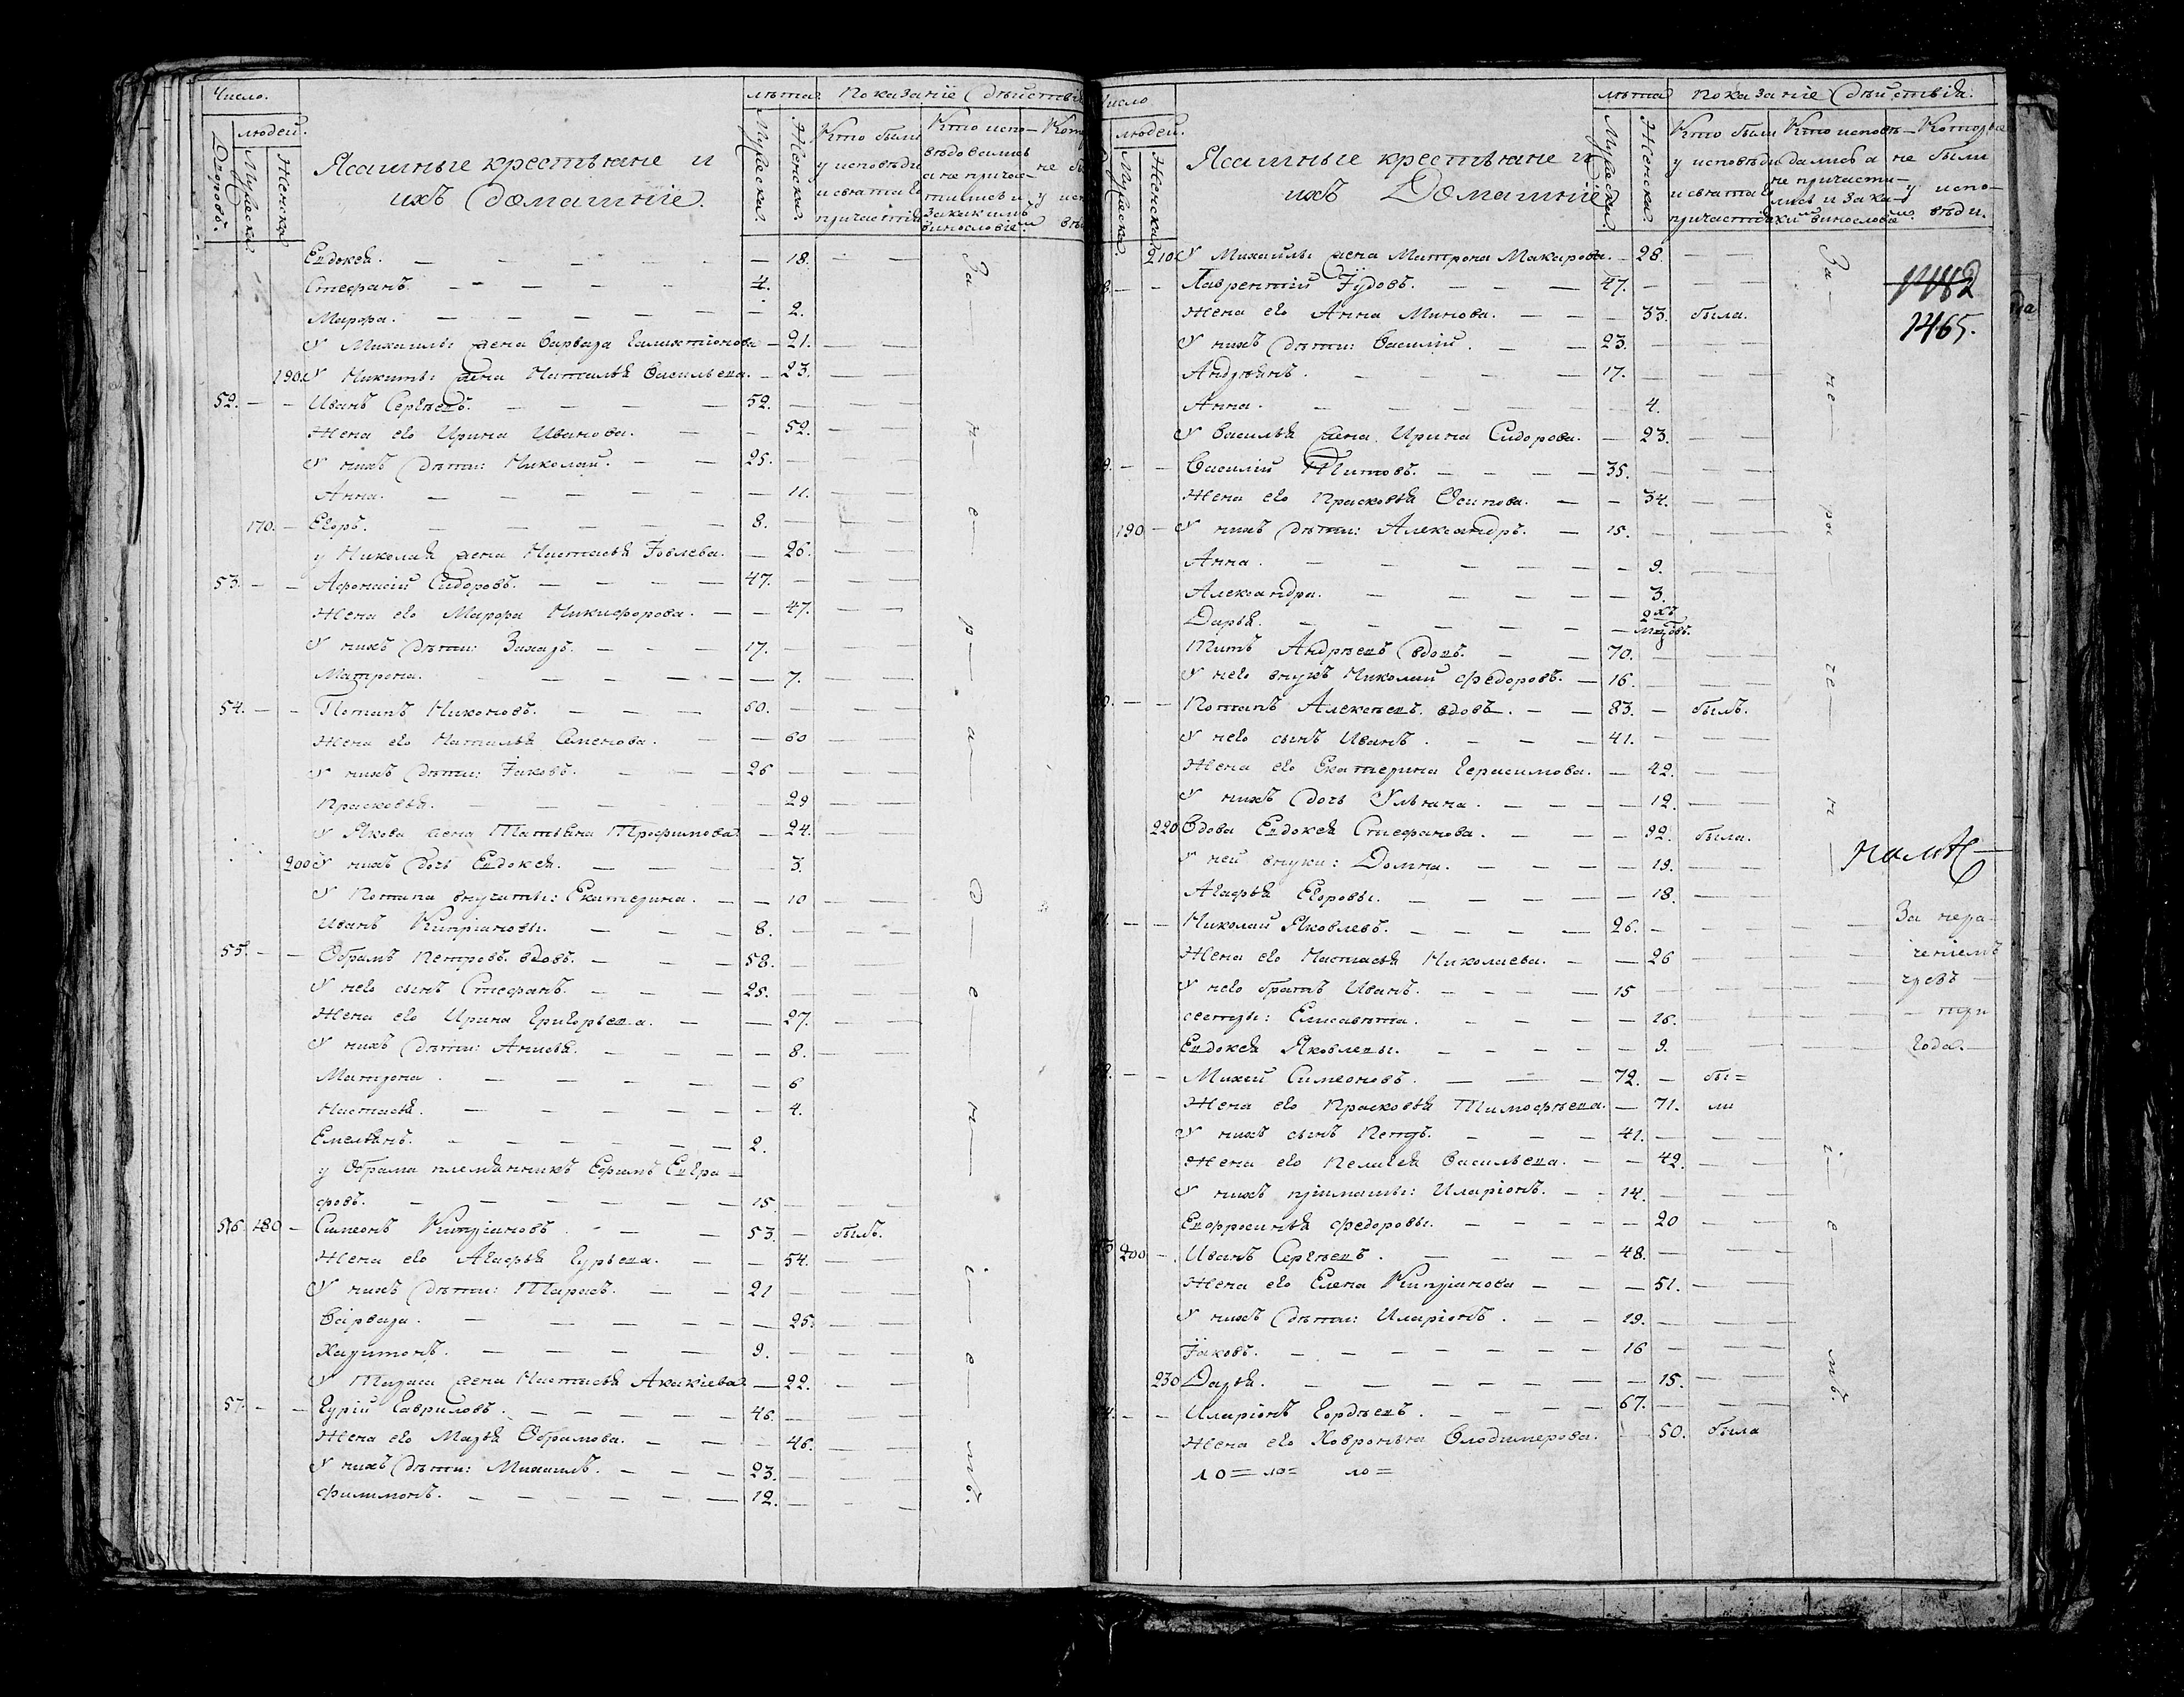 Число.
людей.
Дворовъ.
Мужеска
Женска
Ясашные крестьяне и
ихъ домашніе.
лѣта
Мужеска.
Женска.
Показаніе дѣйствія
Кто были
у исповѣди
и святаго
причастія
Кто испо-
вѣдовались
а не прича-
стились и
за какимъ
винословіемъ
Евдокея. 18.
Стефанъ. 4.
Марфа. 2.
У Михаилы жена Варвара Галактіонова 21.
190 У Никиты жена Наталья Васильева. 23.
52. Иванъ Сергѣевъ. 52.
Жена его Ирина Иванова. 52.
У нихъ дѣти: Николай. 25.
Анна. 11.
170. Егоръ. 8.
у Николая жена Настасья Іовлева. 26.
53. Афонасій Сидоровъ. 47.
Жена его Марфа Никифорова. 47.
У нихъ дѣти: Захаръ. 17.
Матрена. 7.
54. Потапъ Никоновъ. 60.
Жена его Наталья Семенова. 60
У нихъ дѣти: Іаковъ. 26
Прасковья. 29
У Якова жена Татьяна Трофимова 24.
200 У нихъ дочь Евдокея. 3.
У Потапа внучаты: Екатерина. 10
Иванъ Кипріановы. 8.
55. Обрамъ Петровъ вдовъ. 58.
У него сынъ Стефанъ. 25.
Жена его Ирина Григорьева. 27.
У нихъ дѣти: Анисья. 8.
Матрона. 6
Настасья. 4.
Емельянъ. 2.
у Обрама племянникъ Ефимъ Евгра-
фовъ. 15.
56. 180 Симеонъ Кипріановъ 53. былъ.
Жена его Агафья Гурьева. 54.
У нихъ дѣти: Тарасъ. 21
Варвара. 25.
Харитонъ. 9.
У Тараса жена Настасья Акакіева 22.
57. Гурій Гавриловъ. 46.
Жена его Марья Обрамова. 46.
У нихъ дѣти: Михаилъ. 23.
Филимонъ. 12.
За нерадѣніемъ.
Число
людей.
Мужеска.
Женска.
Ясашные крестьяне и
ихъ Домашніе
лѣта
Мужеска.
Женска.
Показаніе дѣйствія.
Кто были
у исповѣди
и святаго
причастія
Кто исповѣ-
дались а
не причасти-
лись и за ка-
кимъ винословіемъ
Которые
не были
у испо-
вѣди.
210 У Михайлы жена Матрона Макарова. 28.
Лаврентій Іудовъ. 47.
Жена его Анна Минова. 33. была.
У нихъ дѣти: Василій. 23.
Андреянъ. 17.
Анна. 4.
У Василья жена Ирина Сидорова. 23.
Василій Титовъ. 35.
Жена его Прасковья Осипова. 34.
190 У нихъ дѣти: Александръ. 15.
Анна. 9.
Александра. 3.
Дарья. 2хъ мцовъ.
Титъ Андреевъ вдовъ. 70.
У него внукъ Николай Федоровъ. 16.
Потапъ Алексеевъ вдовъ. 83. былъ.
У него сынъ Иванъ. 41.
Жена его Екатерина Герасимова. 42.
У нихъ дочь Ульяна. 12.
220 Вдова Евдокея Стефанова. 92. была.
У ней внуки: Домна. 19.
Агафья Егоровы. 18.
Николай Яковлевъ. 26.
Жена его Настасья Николаева. 26
У него братъ Иванъ. 15
сестры: Елисавета. 16.
Евдокея Яковлевы. 9.
Михей Симеоновъ. 72. бы=
Жена его Прасковья Тимофѣева. 71. ли
У нихъ сынъ Петръ. 41.
Жена его Пелагея Васильева. 42.
У нихъ пріимыши: Иларіонъ. 14.
Евфросинья Федоровы. 20
200 Иванъ Сергѣевъ. 48.
Жена его Елена Кипріанова 51.
У нихъ дѣти: Иларіонъ. 19.
Іаковъ. 16
230 Дарья. 15.
Иларіонъ Гордѣевъ. 67.
Жена его Ховронья Володимерова. 50. была
10= 10= 10=
1465.
За нера-
ченіемъ
чрезъ
три
года.